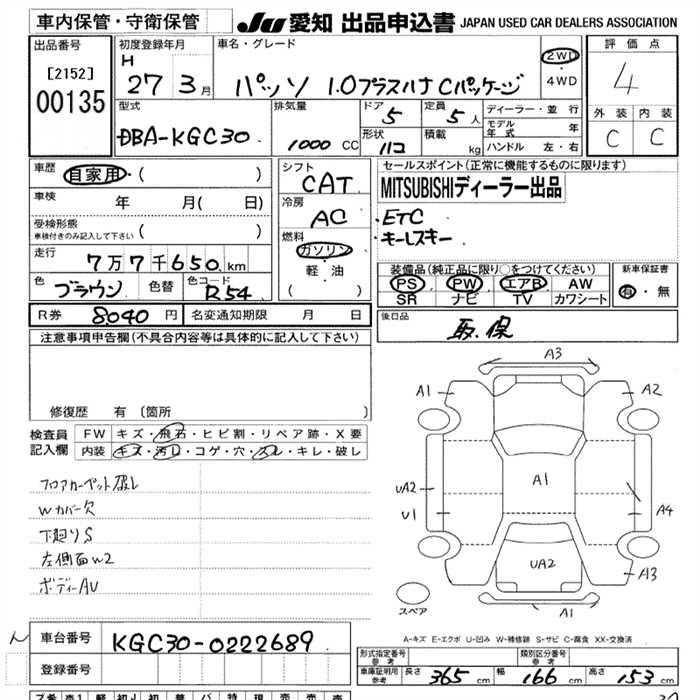 車内保管・守衛保管
JU 愛知 出品申込書 JAPAN USED CAR DEALERS ASSOCIATION
出品番号
[2152]
00135
初度登録年月
H 27 3月
車名・グレード
パッソ 1.0プラスハナ Cパッケージ
2WD
・
4WD
評価点
4
外装 内装
C C
型式
DBA-KGC30
排気量
1000 CC
ドア 5
形状 ハコ
定員 5人
積載 kg
ディーラー・並行
モデル年式 年
ハンドル 左・右
車歴 自家用・( )
車検 年 月( 日)
受検形態
車検付きのみ記入して下さい ( )
走行
7万7千650 km
色 ブラウン 色替 色コード R54
シフト
CAT
冷房
AC
燃料
ガソリン
・
軽・油
( )
セールスポイント(正常に機能するものに限ります)
MITSUBISHIディーラー出品
・ETC
・キーレスキー
装備品(純正品に限り○をつけてください)
PS PW エアB AW
SR ナビ TV カワシート
新車保証書
有・無
R券 8040円 名変通知期限 月 日
後日品
取.保
注意事項申告欄(不具合内容等は具体的に記入して下さい)
修復歴 有 (箇所 )
検査員記入欄
FW キズ・飛石・ヒビ割・リペア跡・X要
内装 キズ・汚れ・コゲ・穴・スレ・キレ・破レ
フロアカーペット破レ
Wカバー欠
下廻りS
左側面W2
ボディーAU
A3
A1
A2
UA2
A1
U1
A4
UA2
A3
A1
スペア
A-キズ E-エクボ U-凹み W-補修跡 S-サビ C-腐食 XX-交換済
車台番号 KGC30-0222689
登録番号
形式指定番号 参考
類別区分番号 参考
車庫証明用 参考 長さ 365 cm 幅 166 cm 高さ 153 cm